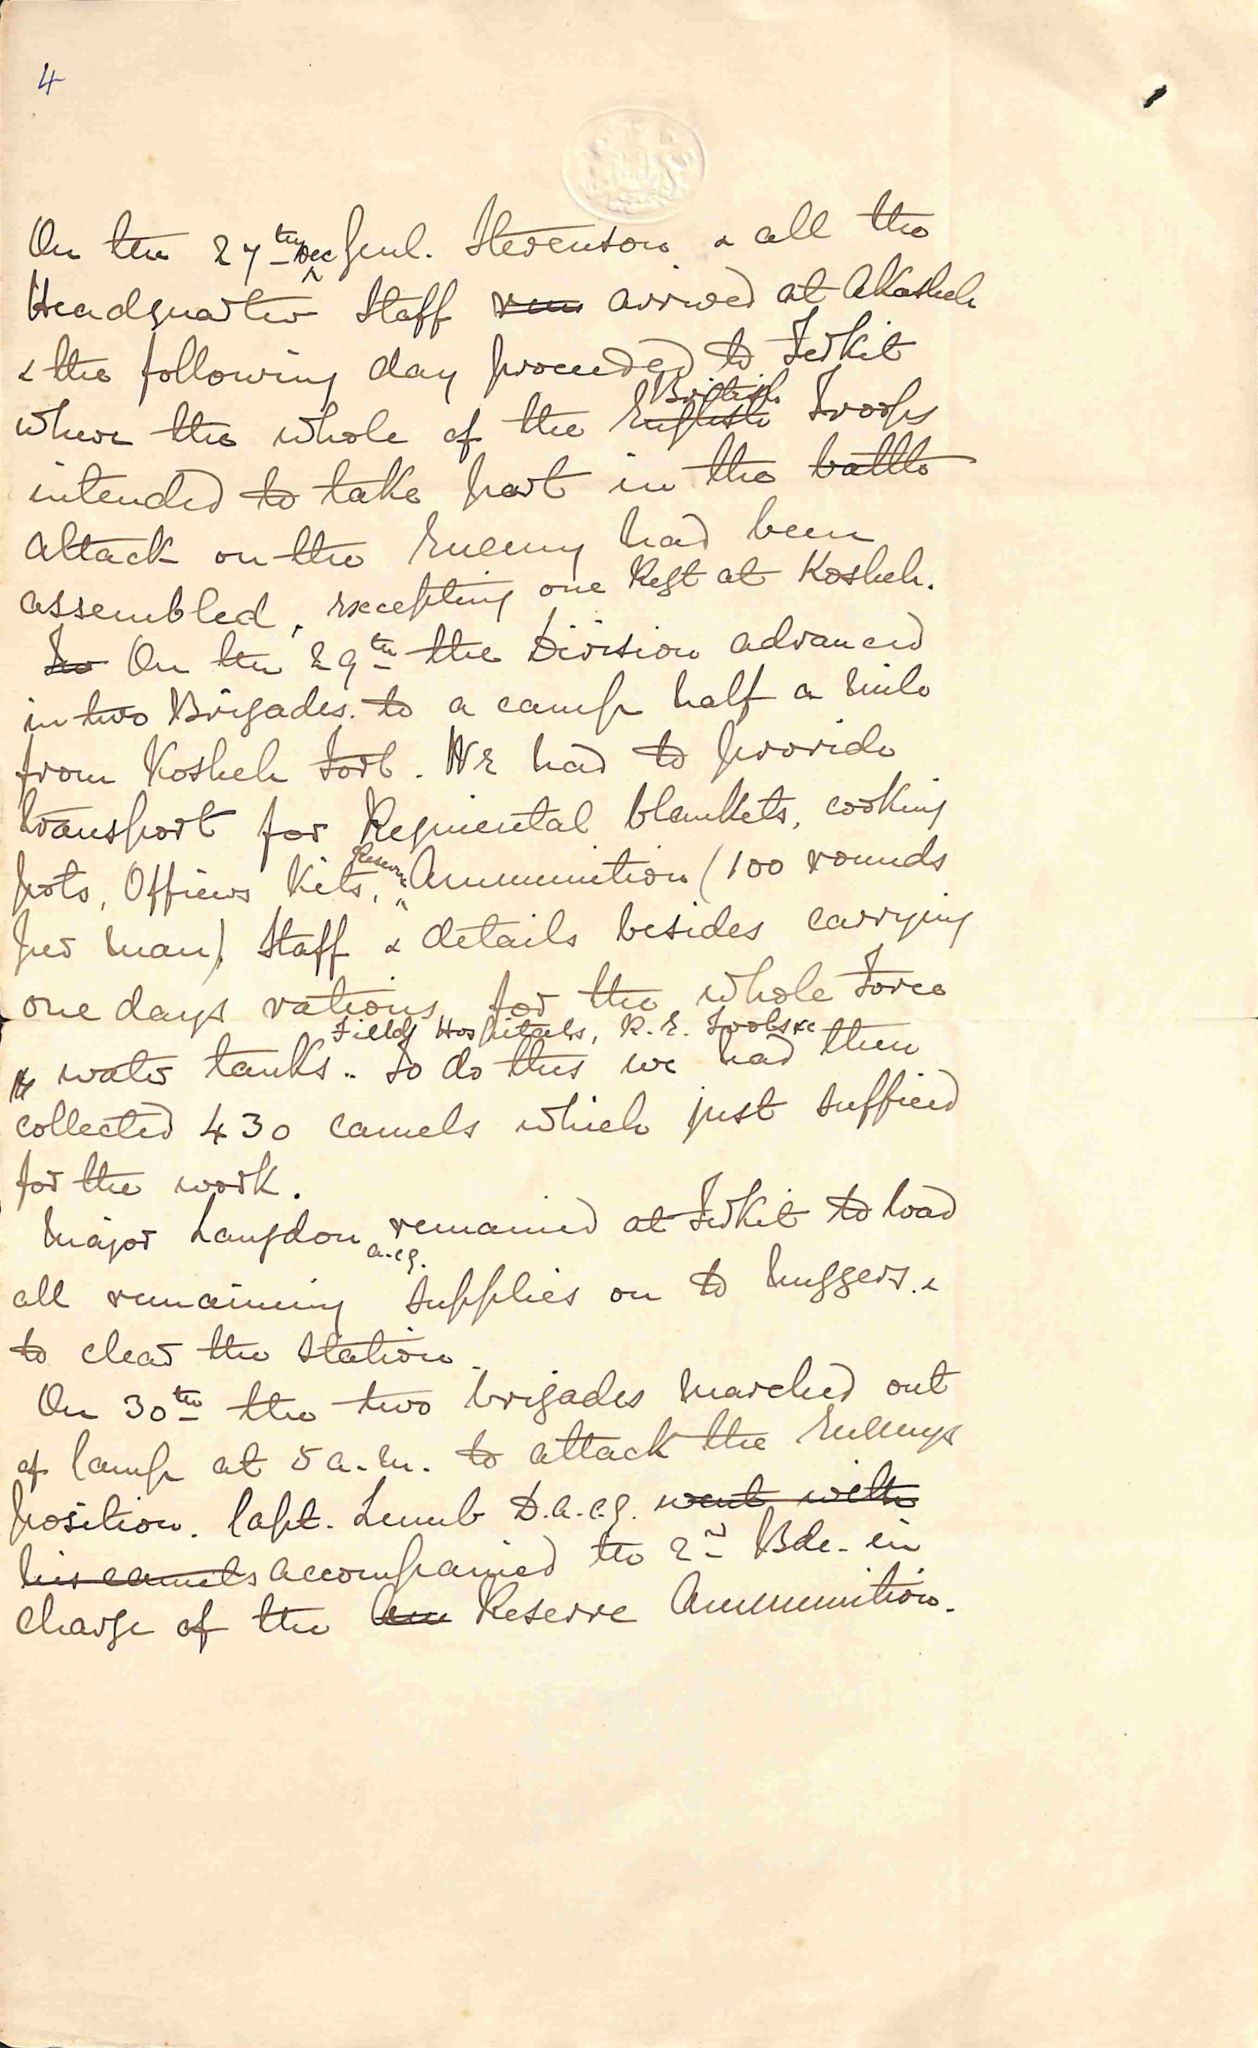 4
On the 27th Dec Genl. Stevenson & all the
Headquarter Staff arrived at Akasheh
& the following day proceeded to Ferkit
where the whole of the English British Troops
intended to take part in the battle
attack on the Enemy had been
assembled, excepting one Regt at Kosheh.
To On the 29th the Division advanced
in two Brigades. to a camp half a mile
from Kosheh Fort. We had to provide
transport for Regimental blankets, cooking
pots, Officers Kits, Reserve Ammunition (100 rounds
per man), Staff & details besides carrying
one days rations for the whole Force
Field Hospitals, R.E. Tools &c
water tanks.. To do this we had then
collected 430 camels which just sufficed
for the work.
Major Langdon a.c.g. remained at Ferkit to load
all remaining supplies on to nuggers. &
to clear the station.
On 30th the two brigades marched out
of Camp at 5 a.m. to attack the Enemys
position. Capt. Lumb D.a.c.g. went with
his camels accompanied the 2nd Bde. in
charge of the Am Reserve Ammunition.